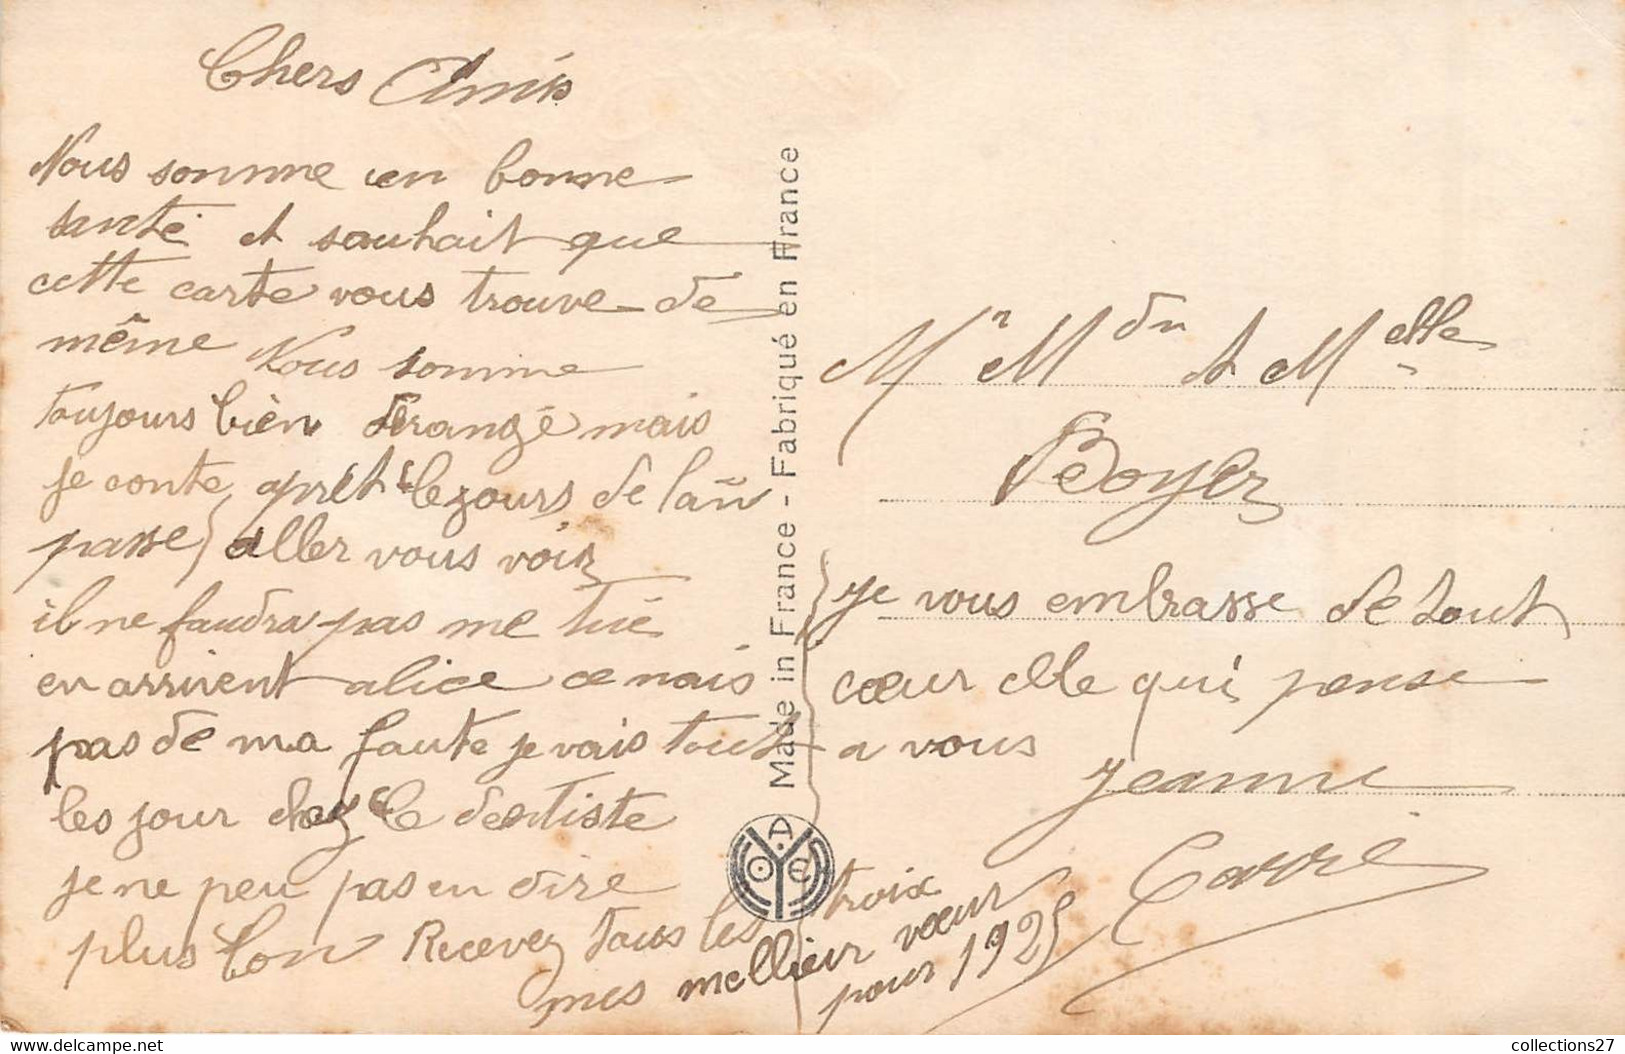 Chers Amis
Nous somme en bonne
santé et souhait que
cette carte vous trouve de
même Nous somme
toujours bien dérangé mais
je conte apret les jours de lan
passe aller vous voir
il ne faudra pas me tué
en arrivent alice ce nais
pas de ma faute je vais tout
les jour chez le dentiste
je ne peu pas en dire
plus lon Recevez tous les troix
mes mellieur vœur
pour 1925
Made in France - Fabriqué en France
A
O E
Mr Mdm et Melle
Boyer
je vous embrasse de tout
cœur elle qui pense
a vous
jeanne
Carré
collections27